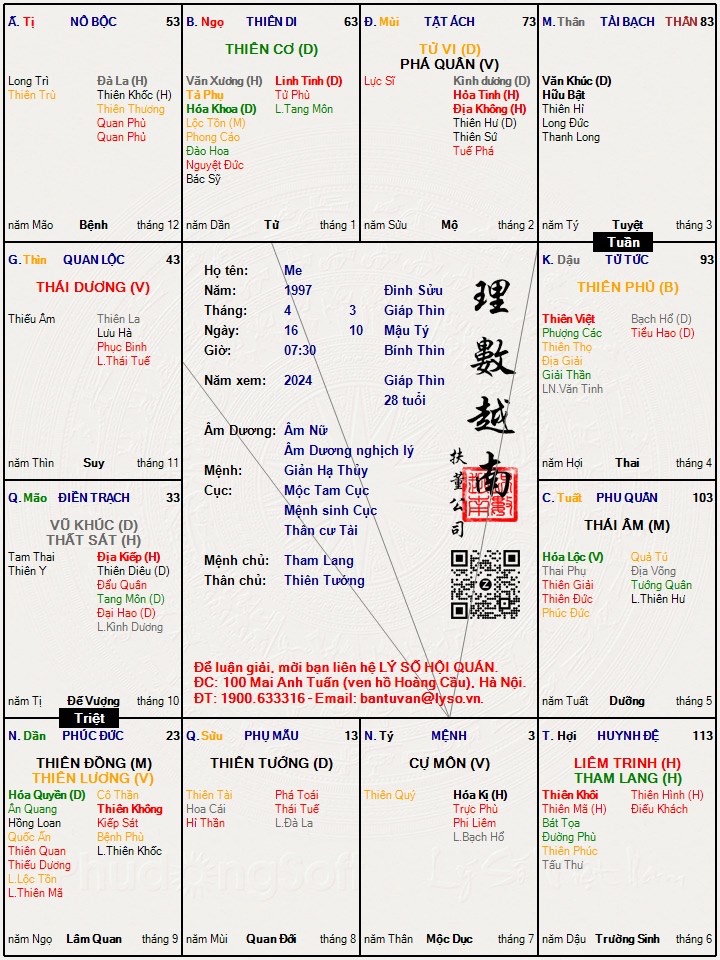 Ă. Tị NÔ BỘC 53
Long Trì
Thiên Trù
Đà La (H)
Thiên Khốc (H)
Thiên Thương
Quan Phù
Quan Phủ
năm Mão Bệnh tháng 12
B. Ngọ THIÊN DI 63
THIÊN CƠ (D)
Văn Xương (H)
Tả Phụ
Hóa Khoa (D)
Lộc Tồn (M)
Phong Cáo
Đào Hoa
Nguyệt Đức
Bác Sỹ
Linh Tinh (D)
Tử Phù
L.Tang Môn
năm Dần Tử tháng 1
Đ. Mùi TẬT ÁCH 73
TỬ VI (D)
PHÁ QUÂN (V)
Lực Sĩ
Kình dương (D)
Hỏa Tinh (H)
Địa Không (H)
Thiên Hư (D)
Thiên Sứ
Tuế Phá
năm Sửu Mộ tháng 2
M. Thân TÀI BẠCH THÂN 83
Văn Khúc (D)
Hữu Bật
Thiên Hỉ
Long Đức
Thanh Long
năm Tý Tuyệt tháng 3
Tuần
G. Thìn QUAN LỘC 43
THÁI DƯƠNG (V)
Thiếu Âm
Thiên La
Lưu Hà
Phục Binh
L.Thái Tuế
năm Thìn Suy tháng 11
Họ tên: Me
Năm: 1997 Đinh Sửu
Tháng: 4 3 Giáp Thìn
Ngày: 16 10 Mậu Tý
Giờ: 07:30 Bính Thìn
Năm xem: 2024 Giáp Thìn
28 tuổi
Âm Dương: Âm Nữ
Âm Dương nghịch lý
Mệnh: Giản Hạ Thủy
Cục: Mộc Tam Cục
Mệnh sinh Cục
Thân cư Tài
Mệnh chủ: Tham Lang
Thân chủ: Thiên Tướng
理數越南
扶董公司
Để luận giải, mời bạn liên hệ LÝ SỐ HỘI QUÁN.
ĐC: 100 Mai Anh Tuấn (ven hồ Hoàng Cầu), Hà Nội.
ĐT: 1900.633316 - Email: bantuvan@lyso.vn.
K. Dậu TỬ TỨC 93
THIÊN PHỦ (B)
Thiên Việt
Phượng Các
Thiên Thọ
Địa Giải
Giải Thần
LN.Văn Tinh
Bạch Hổ (D)
Tiểu Hao (D)
năm Hợi Thai tháng 4
Q. Mão ĐIỀN TRẠCH 33
VŨ KHÚC (D)
THẤT SÁT (H)
Tam Thai
Thiên Y
Địa Kiếp (H)
Thiên Diêu (D)
Đẩu Quân
Tang Môn (D)
Đại Hao (D)
L.Kình Dương
năm Tị Đế Vượng tháng 10
Triệt
C. Tuất PHU QUÂN 103
THÁI ÂM (M)
Hóa Lộc (V)
Thai Phụ
Thiên Giải
Thiên Đức
Phúc Đức
Quả Tú
Địa Võng
Tướng Quân
L.Thiên Hư
năm Tuất Dưỡng tháng 5
N. Dần PHÚC ĐỨC 23
THIÊN ĐỒNG (M)
THIÊN LƯƠNG (V)
Hóa Quyền (D)
Ân Quang
Hồng Loan
Quốc Ấn
Thiên Quan
Thiếu Dương
L.Lộc Tồn
L.Thiên Mã
Cô Thần
Thiên Không
Kiếp Sát
Bệnh Phù
L.Thiên Khốc
năm Ngọ Lâm Quan tháng 9
Q. Sửu PHỤ MẪU 13
THIÊN TƯỚNG (D)
Thiên Tài
Hoa Cái
Hỉ Thần
Phá Toái
Thái Tuế
L.Đà La
năm Mùi Quan Đới tháng 8
N. Tý MỆNH 3
CỰ MÔN (V)
Thiên Quý
Hóa Kị (H)
Trực Phù
Phi Liêm
L.Bạch Hổ
năm Thân Mộc Dục tháng 7
T. Hợi HUYNH ĐỆ 113
LIÊM TRINH (H)
THAM LANG (H)
Thiên Khôi
Thiên Mã (H)
Bát Tọa
Đường Phù
Thiên Phúc
Tấu Thư
Thiên Hình (H)
Điếu Khách
năm Dậu Trường Sinh tháng 6